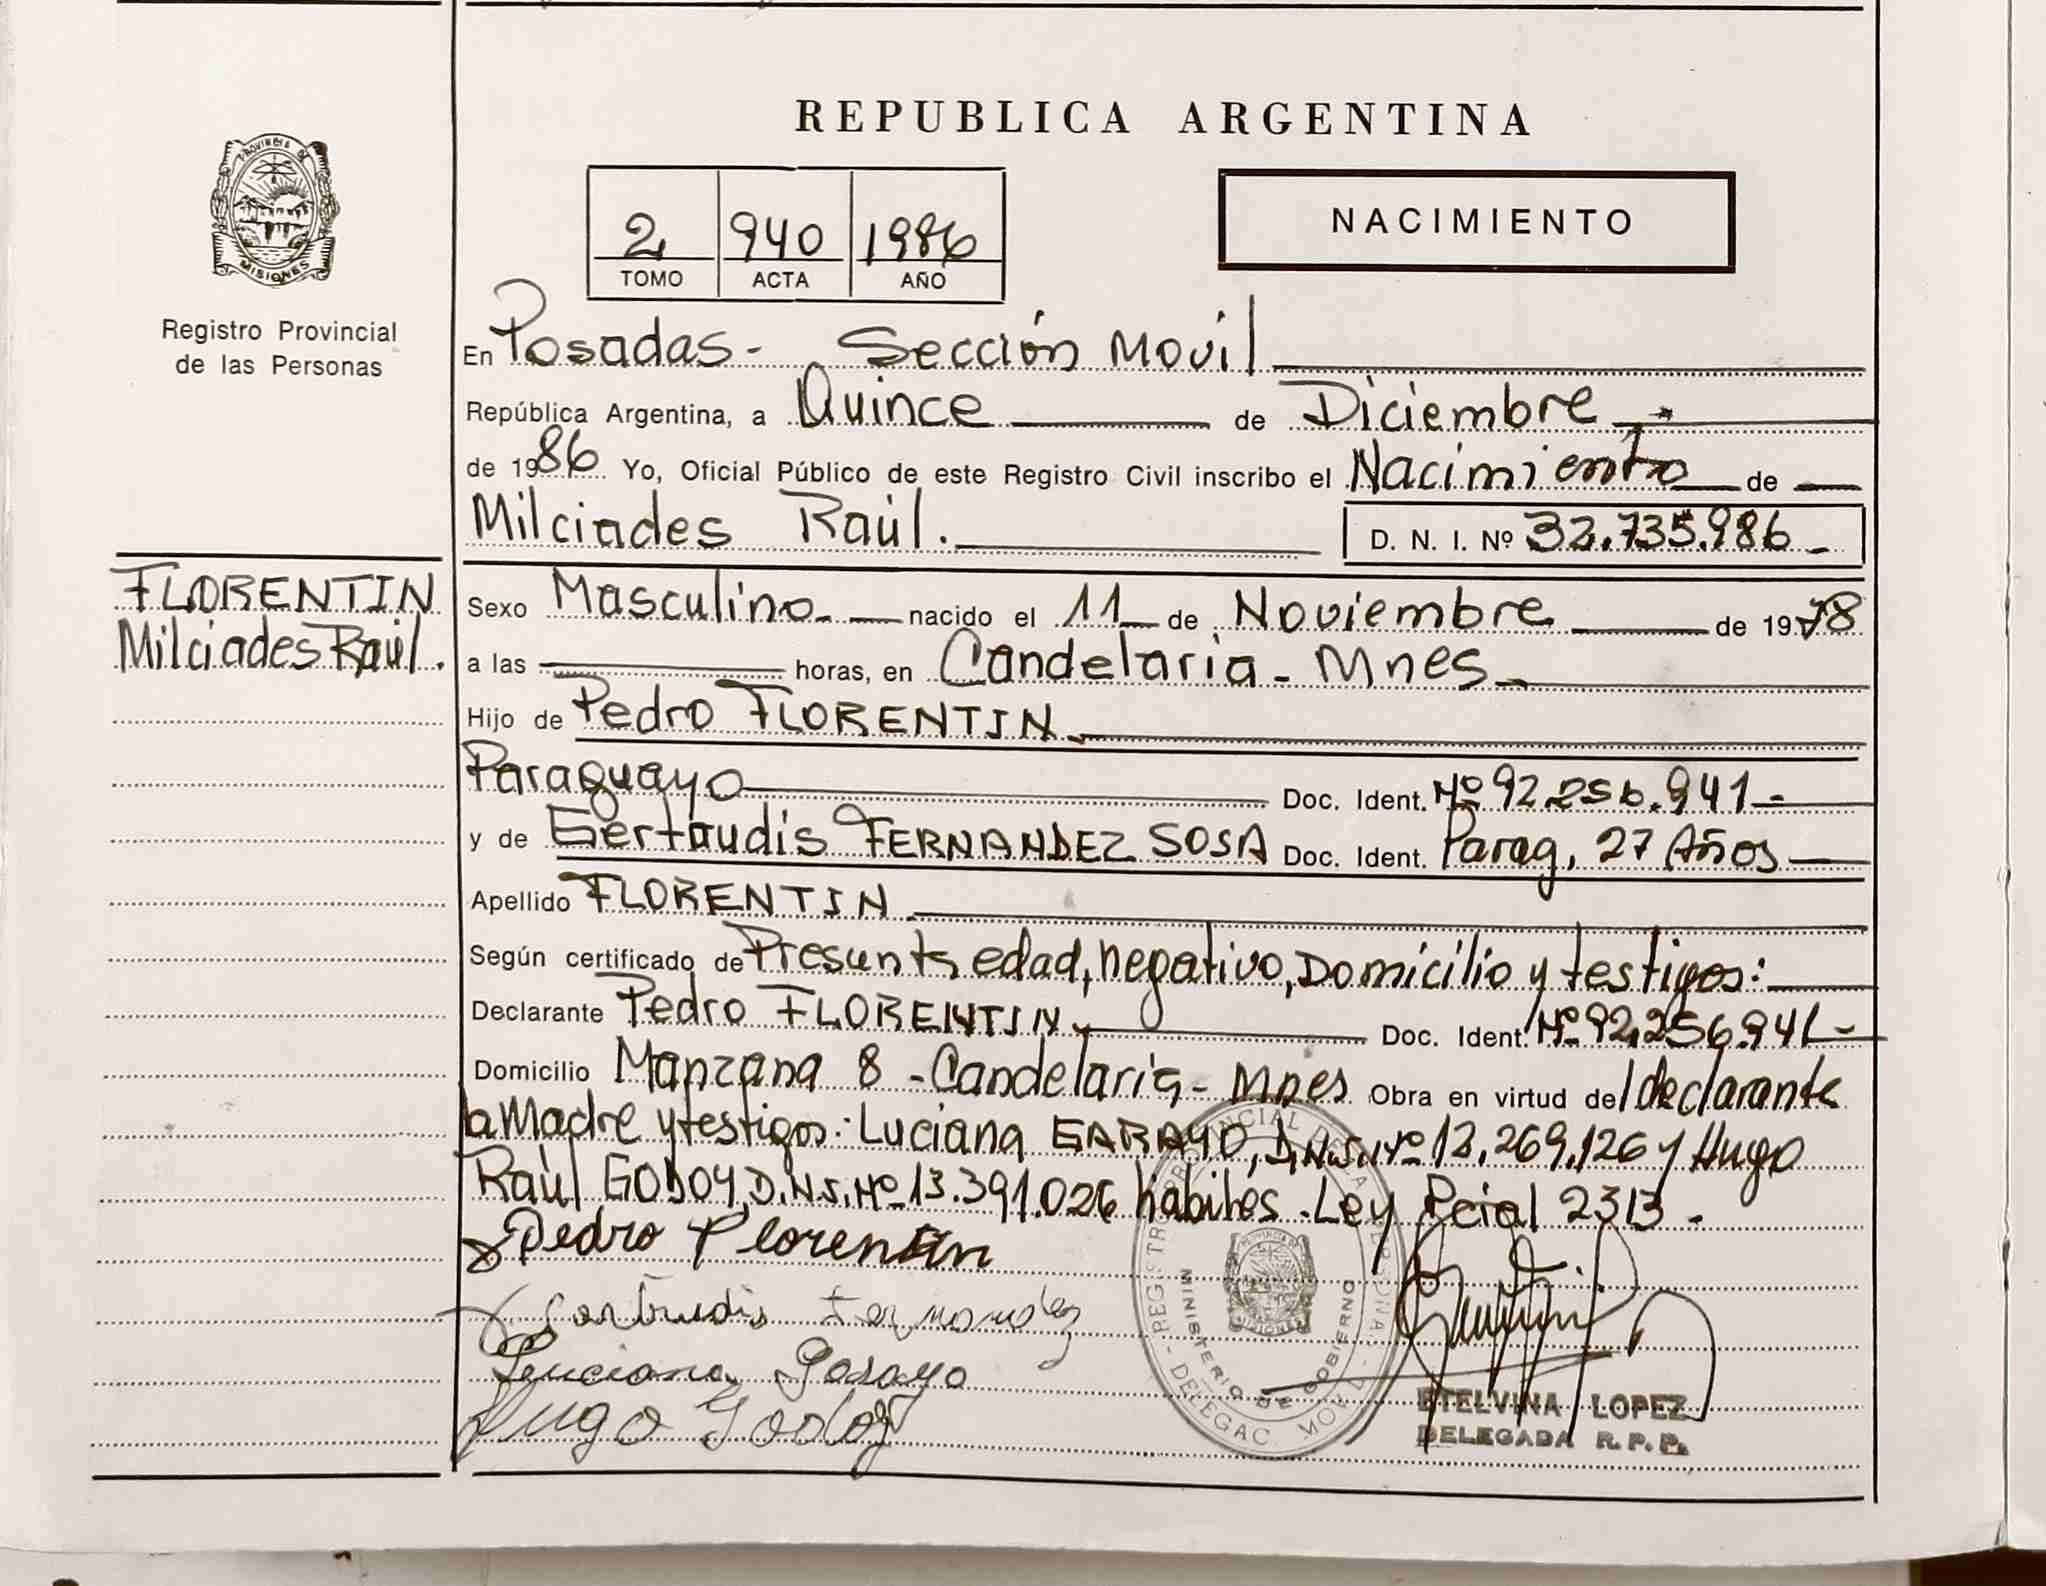 REPUBLICA ARGENTINA
PROVINCIA DE
MISIONES
Registro Provincial
de las Personas
2 940 1986
TOMO ACTA AÑO
NACIMIENTO
En Posadas - Sección Movil
República Argentina, a Quince de Diciembre
de 1986 Yo, Oficial Público de este Registro Civil inscribo el Nacimiento de
Milciades Raúl.
D. N. I. Nº 32.735.986 -
FLORENTIN
Milciades Raúl.
Sexo Masculino nacido el 11 de Noviembre de 1978
a las horas, en Candelaria - Mnes
Hijo de Pedro FLORENTIN
Paraguayo Doc. Ident. Nº 92.256.941 -
y de Gertrudis FERNANDEZ SOSA Doc. Ident. Parag, 27 Años
Apellido FLORENTIN
Según certificado de Presunta edad, negativo, Domicilio y testigos:
Declarante Pedro FLORENTIN Doc. Ident. Nº 92.256.941 -
Domicilio Manzana 8 - Candelaria - Mnes Obra en virtud del declarante
la Madre y testigos: Luciana GARAYO, D.N.I. Nº 13.269.126 y Hugo
Raúl GODOY, D.N.I. Nº 13.391.026 habiles. Ley Pcial 2313 -
Pedro Florentin
Gertrudis Fernandez
Luciana Garayo
Hugo Godoy
REGISTRO PROVINCIAL DE LAS PERSONAS - DELEGAC. MOVIL
MINISTERIO DE GOBIERNO
ETELVINA LOPEZ
DELEGADA R. P. P.